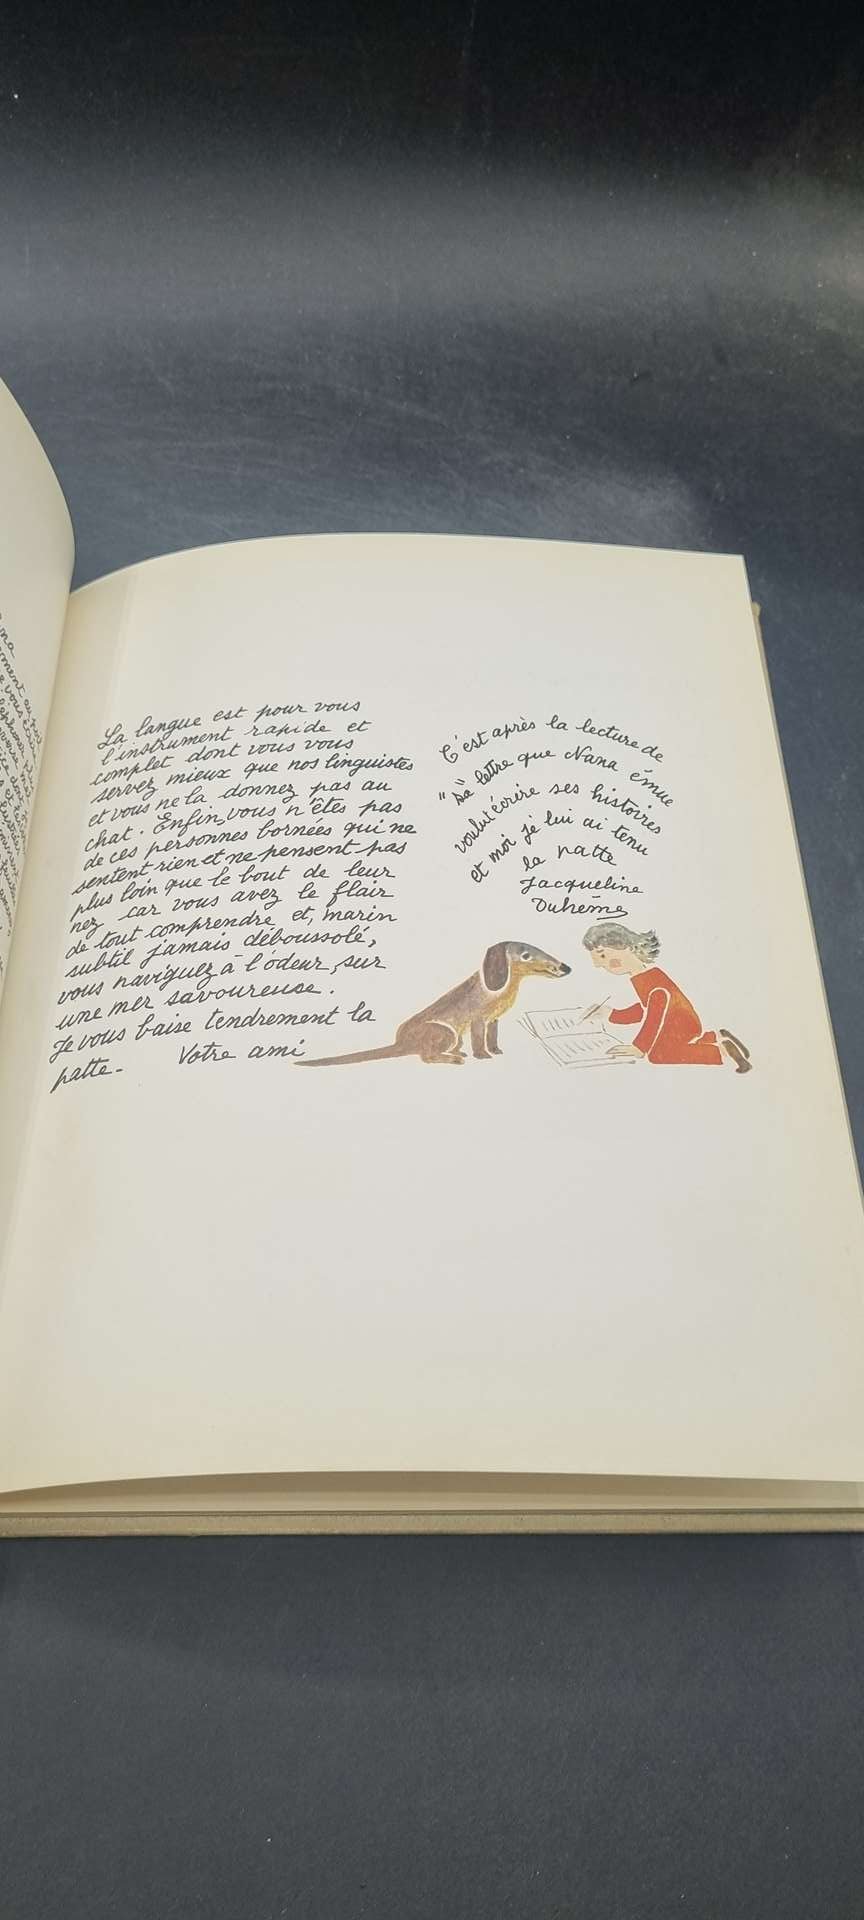 La langue est pour vous
l'instrument rapide et
complet dont vous vous
servez mieux que nos linguistes
et vous ne la donnez pas au
chat. Enfin, vous n'êtes pas
de ces personnes bornées qui ne
sentent rien et ne pensent pas
plus loin que le bout de leur
nez car vous avez le flair
de tout comprendre et, marin
subtil jamais déboussolé,
vous naviguez à l'odeur, sur
une mer savoureuse.
Je vous baise tendrement la
patte. Votre ami
C'est après la lecture de
"sa" lettre que Nana émue
voulut écrire ses histoires
et moi je lui ai tenu
la patte
Jacqueline
Duhême